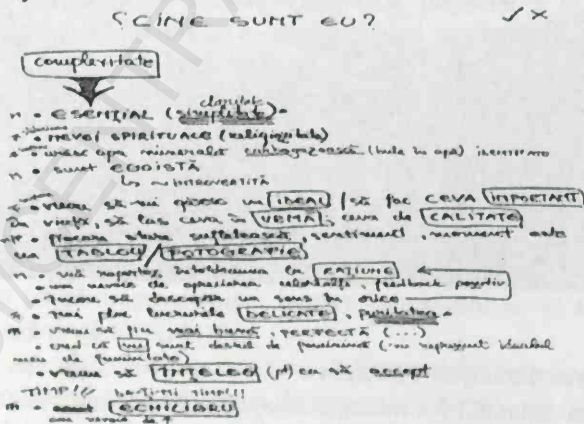 CINE SUNT EU?
complexitate
ESENȚIAL (simplitate)
nevoi SPIRITUALE (religiozitate)
apa minerală (bule în apă)
sunt EGOISTĂ
INTROVERTITĂ
vreau să-mi găsesc un IDEAL / să fac CEVA IMPORTANT
în viață, să las ceva în URMA, ceva de CALITATE
fiecare stare sufletească, sentiment, moment este
un TABLOU / FOTOGRAFIE
mă raportez întotdeauna la RAȚIUNE
am nevoie de aprecierea celorlalți, feedback pozitiv
încerc să descopăr un sens în orice
îmi plac lucrurile DELICATE,
vreau să fiu mai bună, PERFECTĂ (...)
cred că nu sunt destul de feminină (nu reprezint idealul
meu de feminitate)
vreau să ÎNȚELEG (pt) ca să accept
TIMP!!
ECHILIBRU
am nevoie de